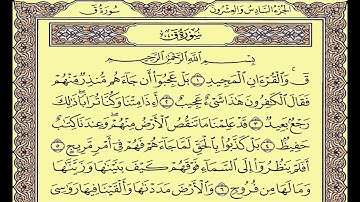 سُورَةُ ق
الجُزْءُ السَّادِسُ وَالعِشْرُونَ
سُورَةُ ق
بِسْمِ اللَّهِ الرَّحْمَٰنِ الرَّحِيمِ
قٓ ۚ وَالْقُرْءَانِ الْمَجِيدِ ١ بَلْ عَجِبُوٓا۟ أَن جَآءَهُم مُّنذِرٌ مِّنْهُمْ
فَقَالَ الْكَٰفِرُونَ هَٰذَا شَىْءٌ عَجِيبٌ ٢ أَءِذَا مِتْنَا وَكُنَّا تُرَابًا ۖ ذَٰلِكَ
رَجْعٌۢ بَعِيدٌ ٣ قَدْ عَلِمْنَا مَا تَنقُصُ الْأَرْضُ مِنْهُمْ ۖ وَعِندَنَا كِتَٰبٌ
حَفِيظٌۢ ٤ بَلْ كَذَّبُوا۟ بِالْحَقِّ لَمَّا جَآءَهُمْ فَهُمْ فِىٓ أَمْرٍ مَّرِيجٍ ٥
أَفَلَمْ يَنظُرُوٓا۟ إِلَى السَّمَآءِ فَوْقَهُمْ كَيْفَ بَنَيْنَٰهَا وَزَيَّنَّٰهَا
وَمَا لَهَا مِن فُرُوجٍ ٦ وَالْأَرْضَ مَدَدْنَٰهَا وَأَلْقَيْنَا فِيهَا رَوَٰسِىَ